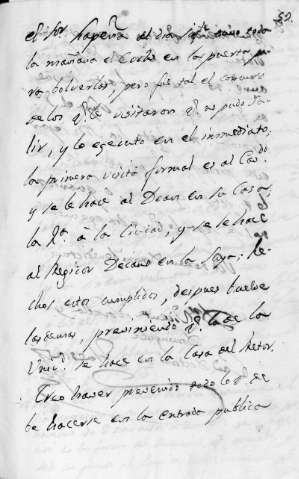 59.
el Sor. Lapeña al dia sigte. tuvo toda
la mañana el Coche en la puerta pa
ra bolverlas, pero fue tal el concurso
de los qe. le visitaron qe. no pudo sa-
lir, y lo egecutó en el inmediato,
la primera visita formal es al Cavdo.
y se le hace al Dean en la Casa,
la 2a. à la Ciudad, y se le hace
al Regidor Decano en la Suya; he-
chos estos cumplidos, despues buelve
las demas, previniendo qe. la de la
Univd. se hace en la Casa del Retor.
Creo haver prevenido todo lo qe. de
be hacerse en la entrada publica